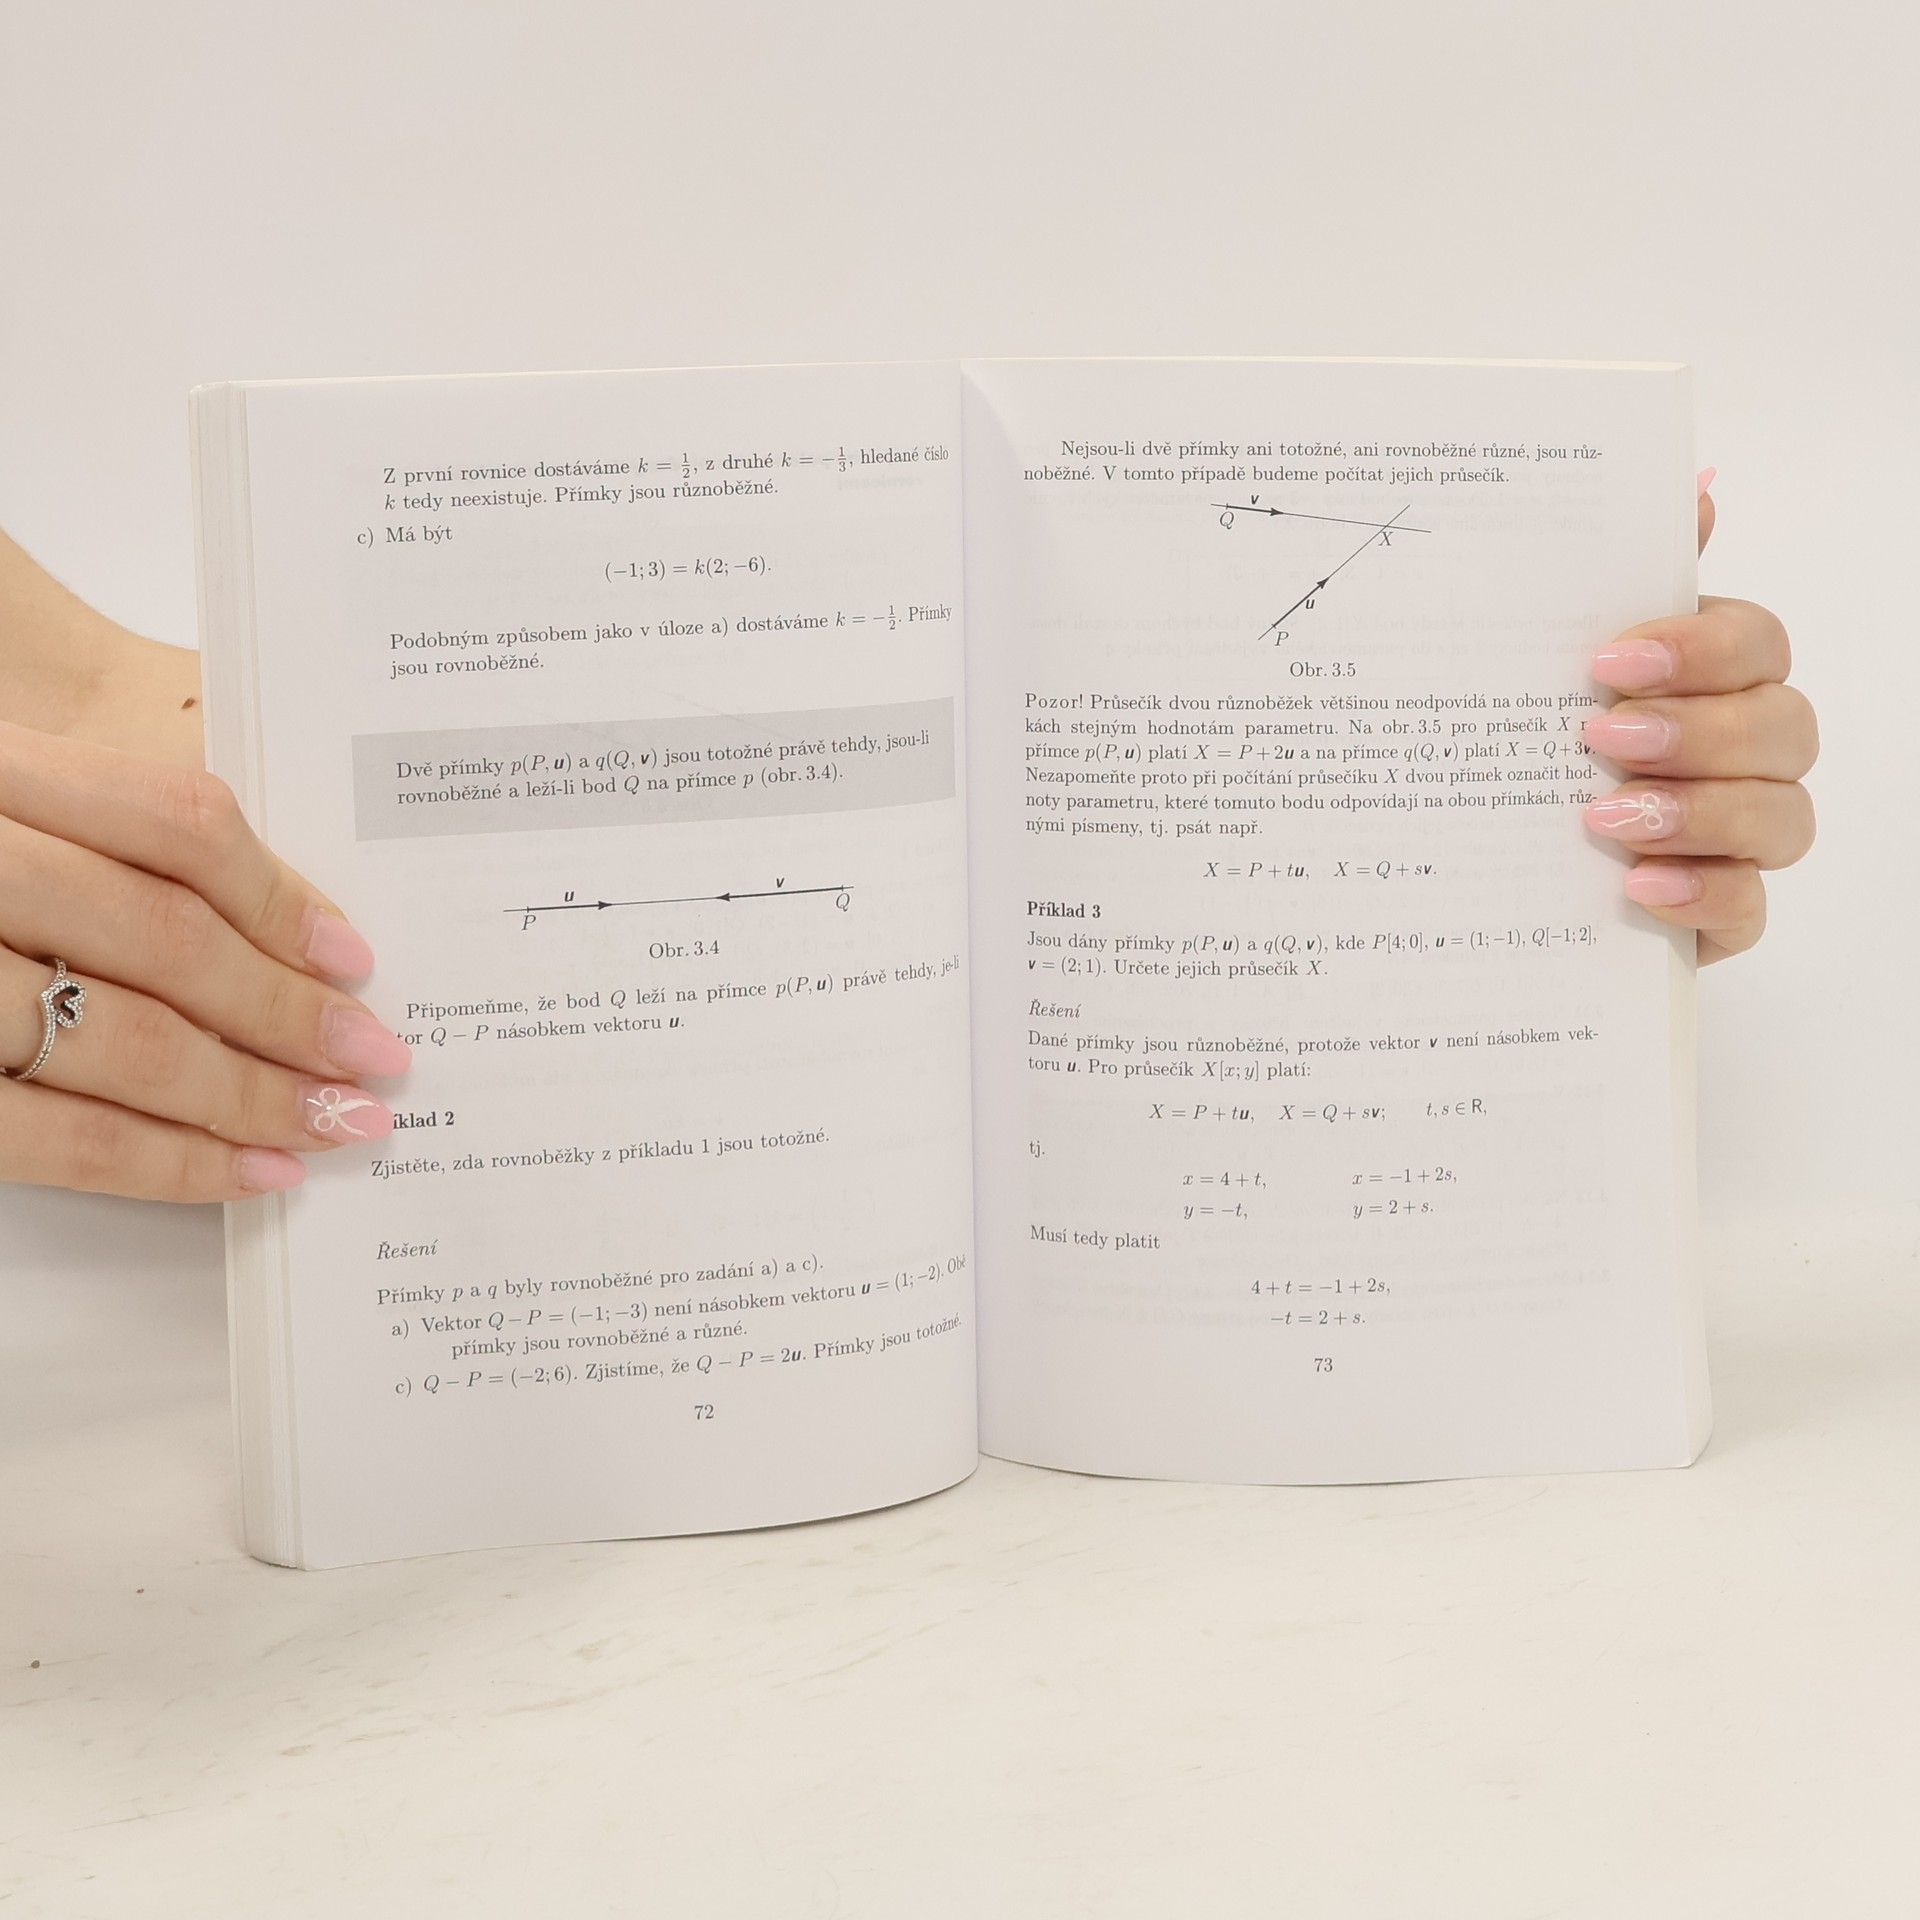 Z první rovnice dostáváme k = 1/2, z druhé k = −1/3, hledané číslo
k tedy neexistuje. Přímky jsou různoběžné.
c) Má být
(−1; 3) = k(2; −6).
Podobným způsobem jako v úloze a) dostáváme k = −1/2. Přímky
jsou rovnoběžné.
Dvě přímky p(P, u) a q(Q, v) jsou totožné právě tehdy, jsou-li
rovnoběžné a leží-li bod Q na přímce p (obr. 3.4).
u v
P Q
Obr. 3.4
Připomeňme, že bod Q leží na přímce p(P, u) právě tehdy, je-li
Q − P násobkem vektoru u.
2
Zjistěte, zda rovnoběžky z příkladu 1 jsou totožné.
Řešení
Přímky p a q byly rovnoběžné pro zadání a) a c).
a) Vektor Q − P = (−1; −3) není násobkem vektoru u = (1; −2). Obě
přímky jsou rovnoběžné a různé.
c) Q − P = (−2; 6). Zjistíme, že Q − P = 2u. Přímky jsou totožné.
72
Nejsou-li dvě přímky ani totožné, ani rovnoběžné různé, jsou růz-
noběžné. V tomto případě budeme počítat jejich průsečík.
v
Q
X
u
P
Obr. 3.5
Pozor! Průsečík dvou různoběžek většinou neodpovídá na obou přím-
kách stejným hodnotám parametru. Na obr. 3.5 pro průsečík X
přímce p(P, u) platí X = P + 2u a na přímce q(Q, v) platí X = Q + 3v.
Nezapomeňte proto při počítání průsečíku X dvou přímek označit hod-
noty parametru, které tomuto bodu odpovídají na obou přímkách, růz-
nými písmeny, tj. psát např.
X = P + tu, X = Q + sv.
Příklad 3
Jsou dány přímky p(P, u) a q(Q, v), kde P[4; 0], u = (1; −1), Q[−1; 2],
v = (2; 1). Určete jejich průsečík X.
Řešení
Dané přímky jsou různoběžné, protože vektor v není násobkem vek-
toru u. Pro průsečík X[x; y] platí:
X = P + tu, X = Q + sv; t, s ∈ R,
tj.
x = 4 + t, x = −1 + 2s,
y = −t, y = 2 + s.
Musí tedy platit
4 + t = −1 + 2s,
−t = 2 + s.
73